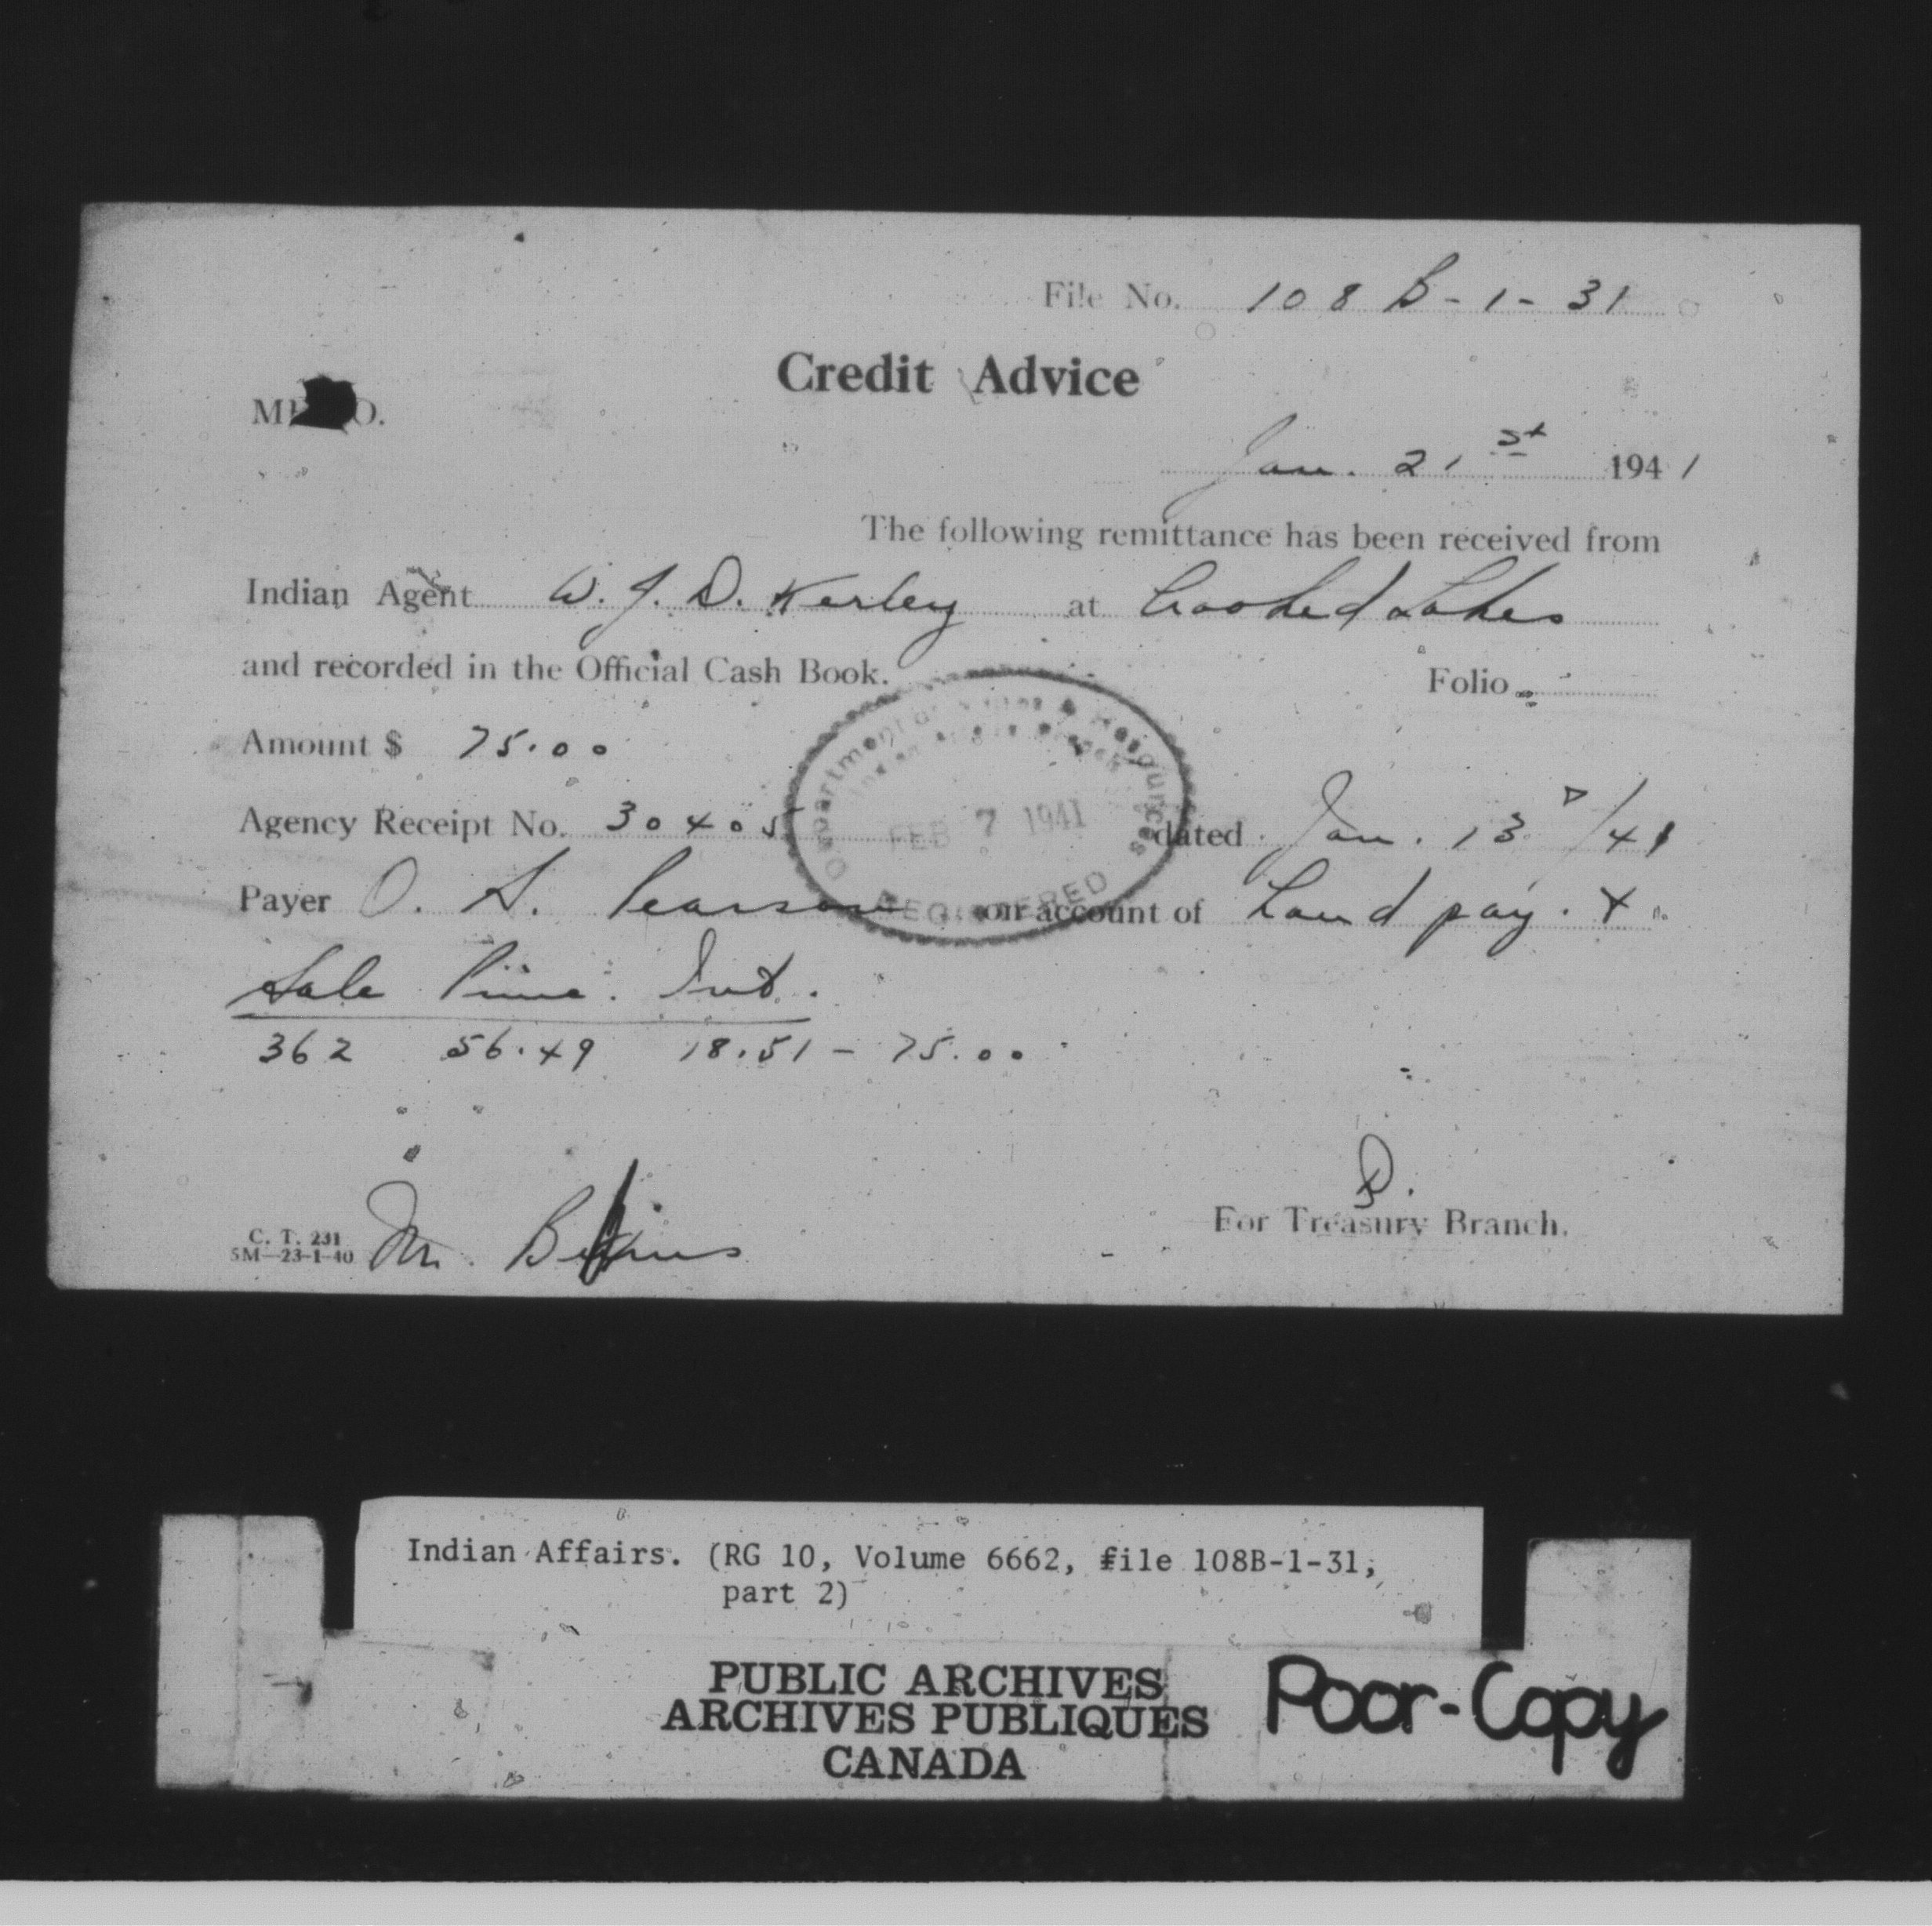 File No. 108 B-1-31
Credit Advice
Jan. 21st 1941
The following remittance has been received from
Indian Agent W. J. D. Kerley at Crooked Lakes
and recorded in the Official Cash Book. Folio
Amount $ 75.00
Agency Receipt No. 30405 dated Jan. 13 /41
Payer O. S. Pearson on account of Land pay. +
Department of Mines & Resources
Indian Affairs Branch
FEB 7 1941
REGISTERED
Sale Prine. Int.
362 56.49 18.51 - 75.00
D.
For Treasury Branch.
C. T. 231
5M—23-1-40
Mr.
Indian Affairs. (RG 10, Volume 6662, file 108B-1-31,
part 2)
PUBLIC ARCHIVES
ARCHIVES PUBLIQUES
CANADA
Poor-Copy